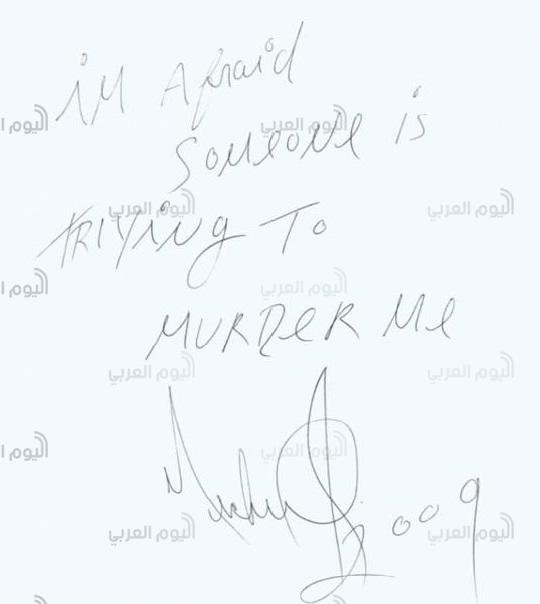 iM Afraid
someone is
TRIYing To
MURDER Me
2009
اليوم العربي
اليوم العربي
اليوم العربي
اليوم العربي
اليوم العربي
اليوم العربي
اليوم العربي
اليوم العربي
اليوم العربي